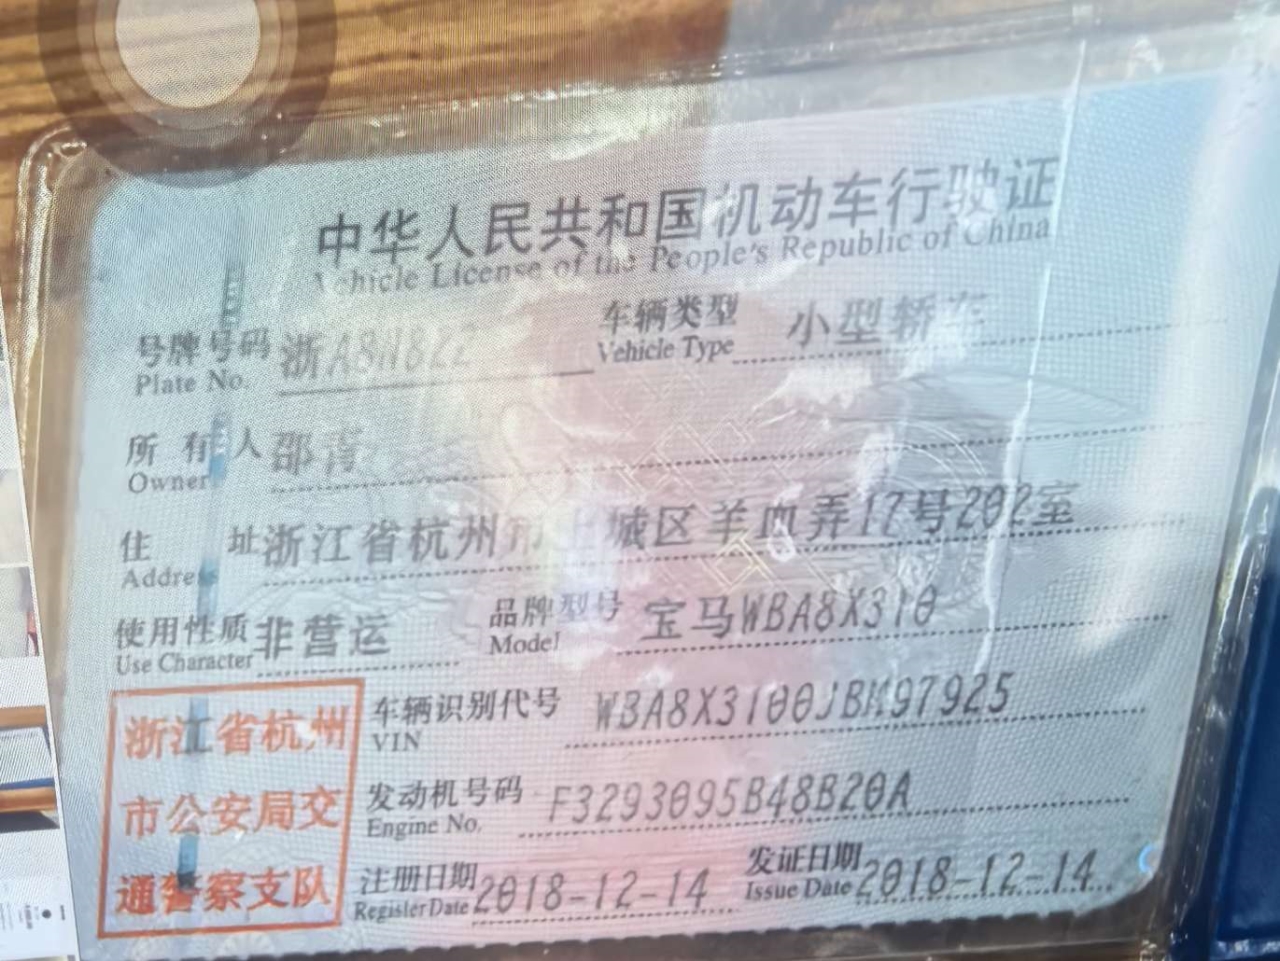 中华人民共和国机动车行驶证
Vehicle License of the People's Republic of China
号牌号码 浙A8N822 车辆类型 小型轿车
Plate No. Vehicle Type
所有人 邵青
Owner
住址 浙江省杭州市上城区羊血弄17号202室
Address
使用性质 非营运 品牌型号 宝马WBA8X310
Use Character Model
浙江省杭州
市公安局交
通警察支队
车辆识别代号 WBA8X3100JBM97925
VIN
发动机号码 F3293095B48B20A
Engine No.
注册日期 2018-12-14 发证日期 2018-12-14
Register Date Issue Date